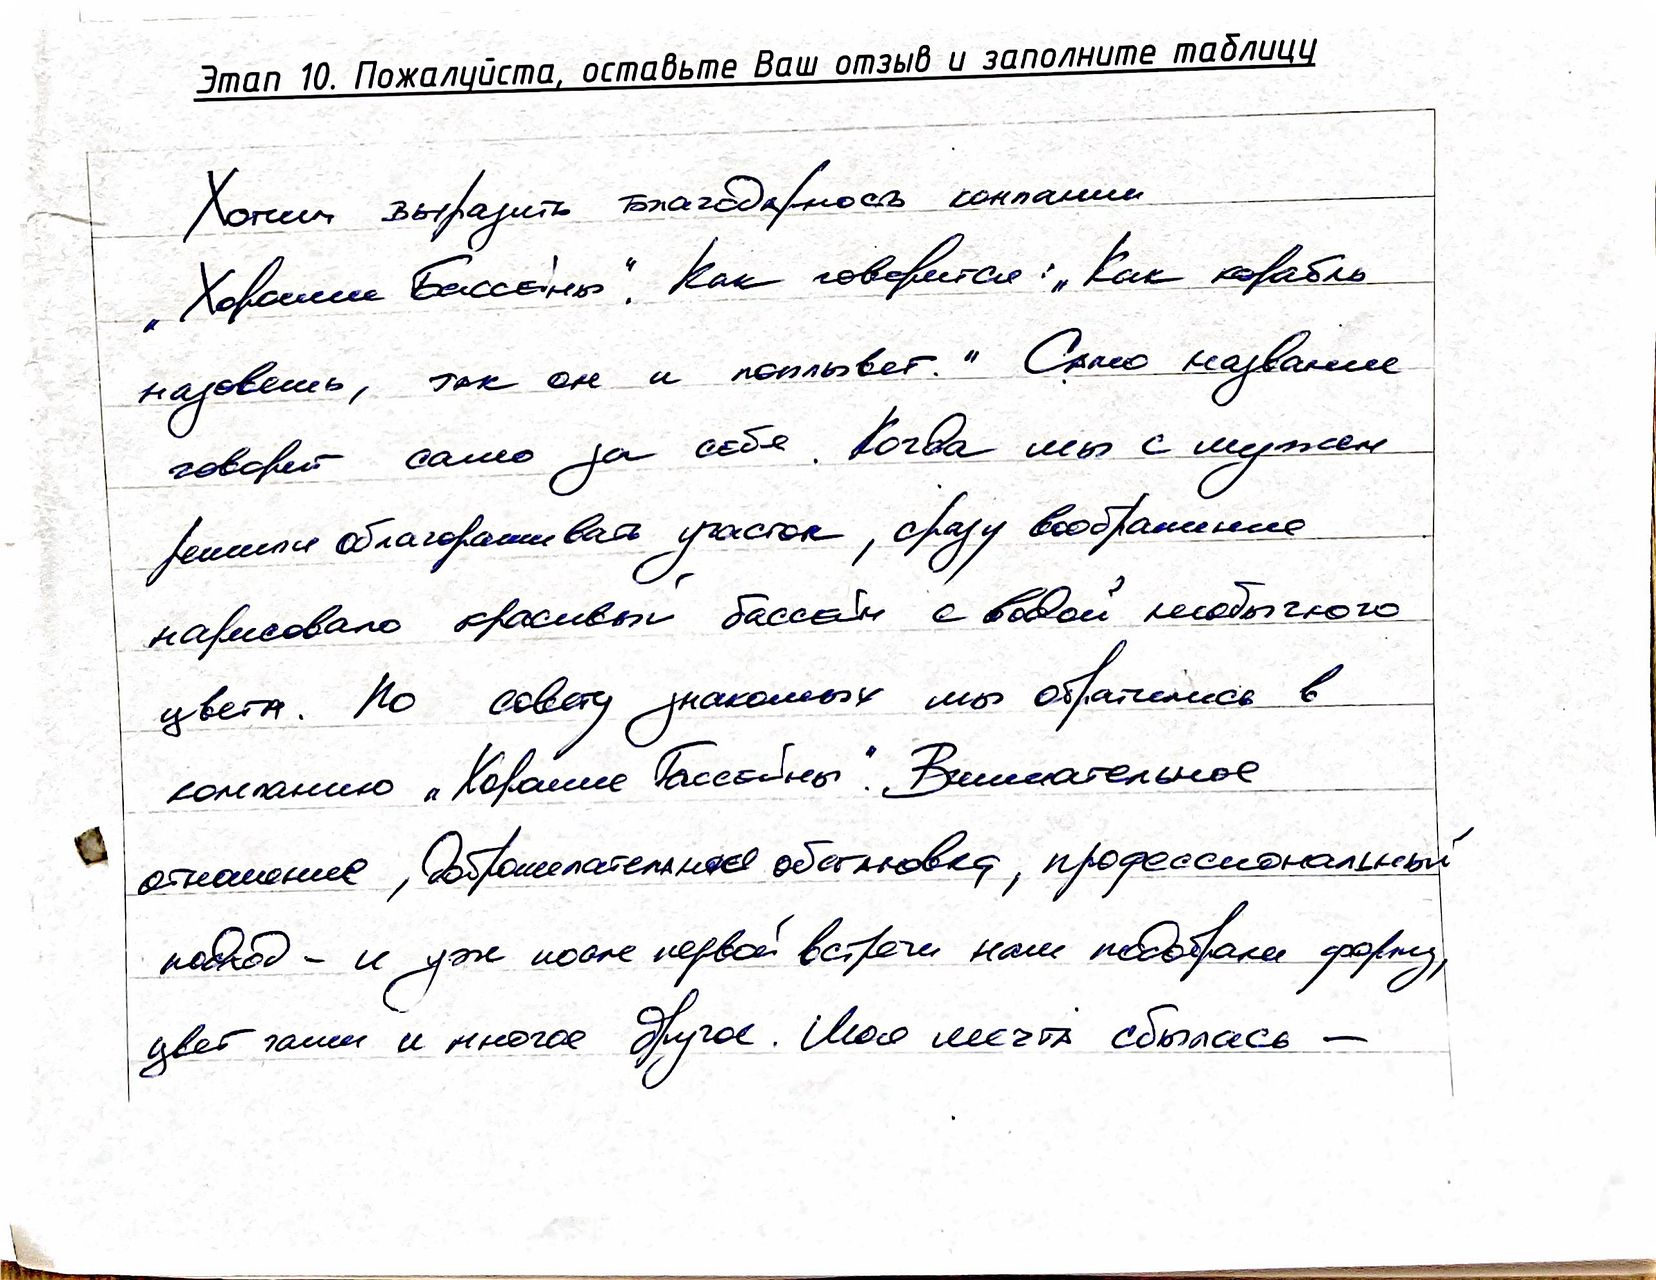 Этап 10. Пожалуйста, оставьте Ваш отзыв и заполните таблицу
Хотим выразить благодарность компании
„Хорошие Бассейны". Как говорится: „Как корабль
назовешь, так он и поплывет." Само название
говорит само за себя. Когда мы с мужем
решили облагораживать участок, сразу воображение
нарисовало красивый бассейн с водой необычного
цвета. По совету знакомых мы обратились в
компанию „Хорошие Бассейны". Внимательное
отношение, доброжелательная обстановка, профессиональный
подход – и уже после первой встречи нам подобрали форму,
цвет чаши и многое другое. Моя мечта сбылась –